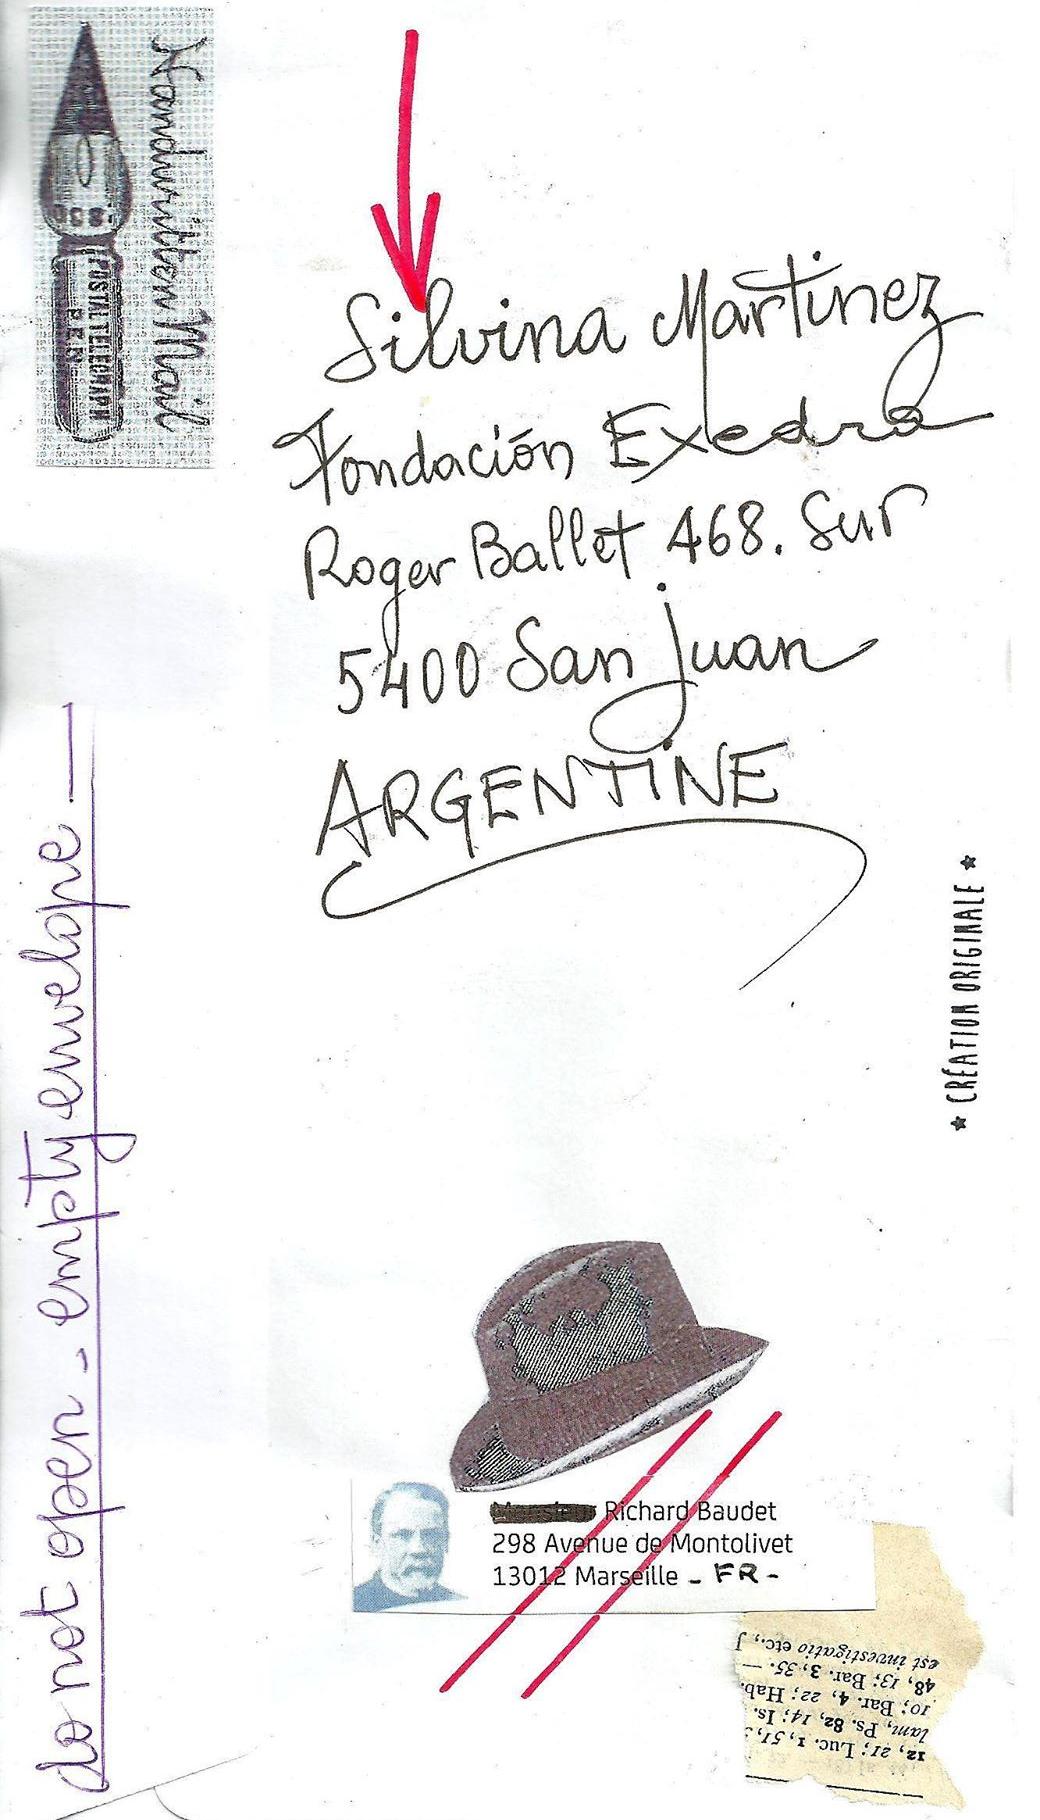 Handwritten Mail
U.C.S.
POSTAL TELEGRAPH
PEN
Silvina Martinez
Fondación Exedra
Roger Ballet 468. Sur
5400 San juan
ARGENTINE
do not open - empty envelope —
★ CRÉATION ORIGINALE ★
Monsieur Richard Baudet
298 Avenue de Montolivet
13012 Marseille - FR -
12, 21; Luc. 1, 51,
lam, Ps. 82, 14; Is.
10; Bar. 4, 22; Hab.
48, 13; Bar. 3, 35. —
est investigatio etc., J